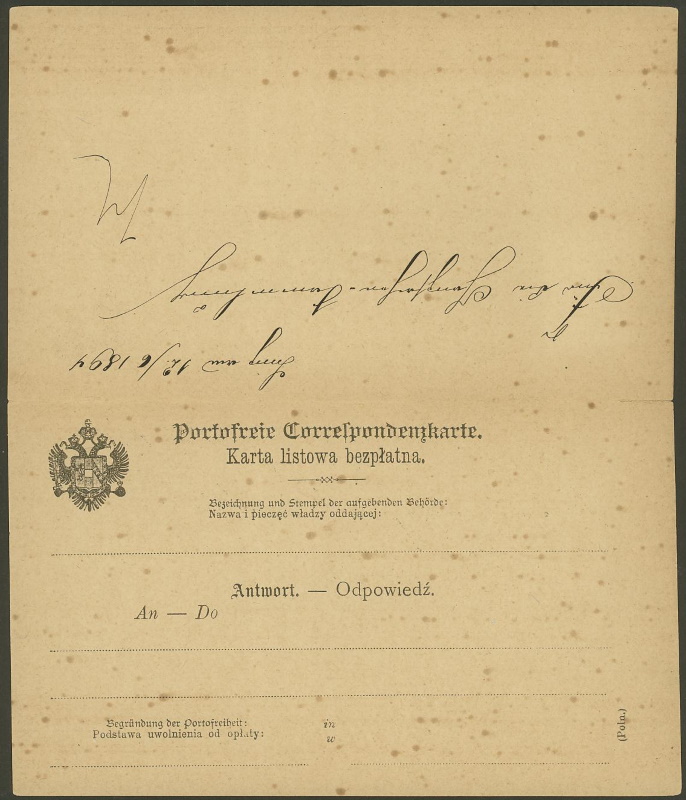 1894
Portofreie Correspondenzkarte.
Karta listowa bezpłatna.
Bezeichnung und Stempel der aufgebenden Behörde:
Nazwa i pieczęć władzy oddającej:
Antwort. — Odpowiedź.
An — Do
Begründung der Portofreiheit:
Podstawa uwolnienia od opłaty:
in
w
(Poln.)